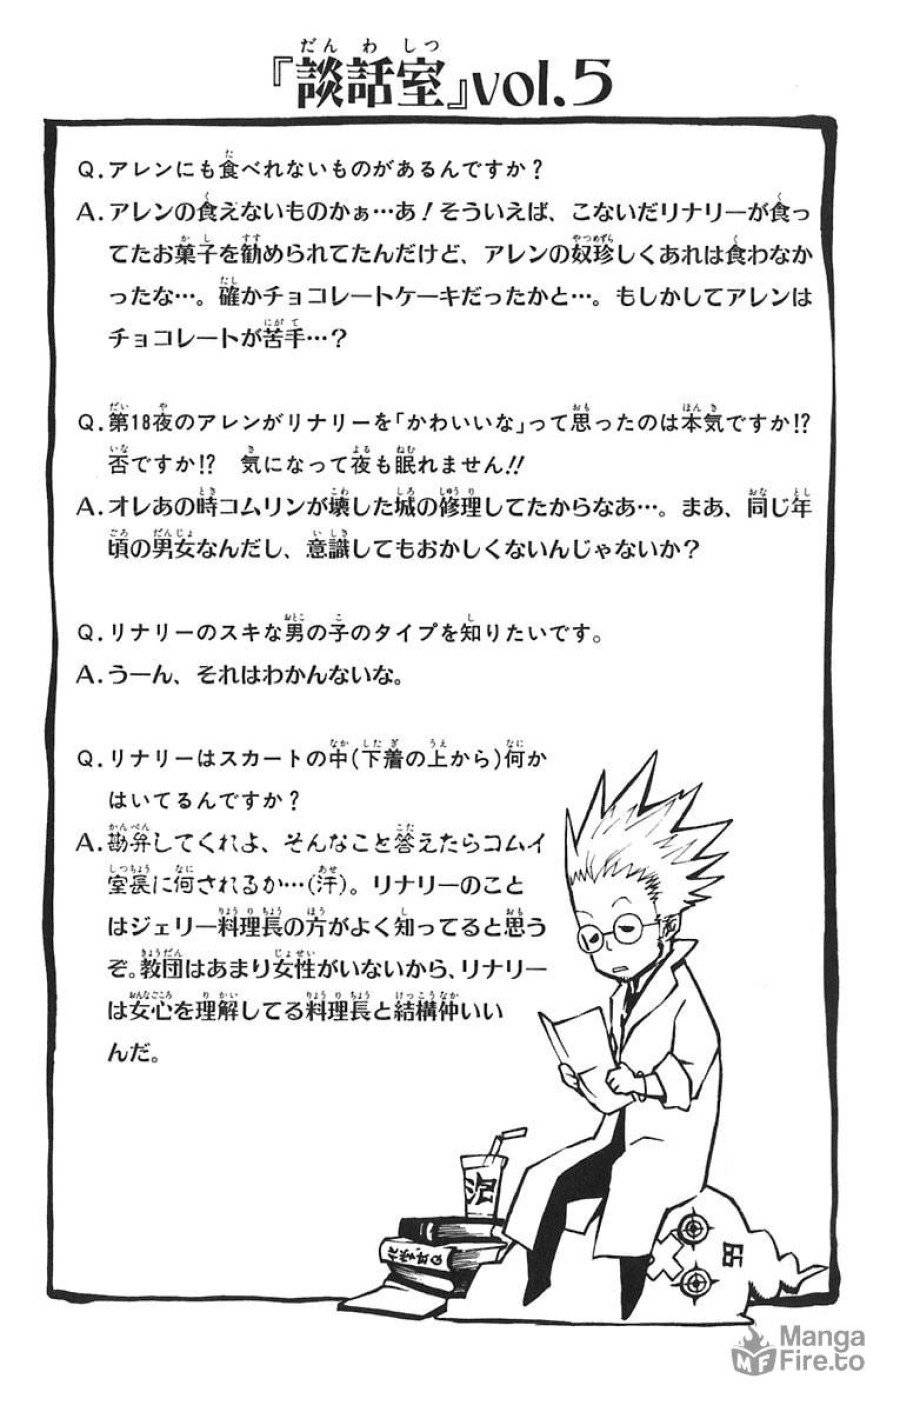 『談話室』vol.5
Q.アレンにも食べれないものがあるんですか？
A.アレンの食えないものかぁ…あ！そういえば、こないだリナリーが食っ
てたお菓子を勧められてたんだけど、アレンの奴珍しくあれは食わなか
ったな…。確かチョコレートケーキだったかと…。もしかしてアレンは
チョコレートが苦手…？
Q.第18夜のアレンがリナリーを「かわいいな」って思ったのは本気ですか!?
否ですか!?　気になって夜も眠れません!!
A.オレあの時コムリンが壊した城の修理してたからなあ…。まあ、同じ年
頃の男女なんだし、意識してもおかしくないんじゃないか？
Q.リナリーのスキな男の子のタイプを知りたいです。
A.うーん、それはわかんないな。
Q.リナリーはスカートの中(下着の上から)何か
はいてるんですか？
A.勘弁してくれよ、そんなこと答えたらコムイ
室長に何されるか…(汗)。リナリーのこと
はジェリー料理長の方がよく知ってると思う
ぞ。教団はあまり女性がいないから、リナリー
は女心を理解してる料理長と結構仲いい
んだ。
泥
65
MF
Manga
Fire.to